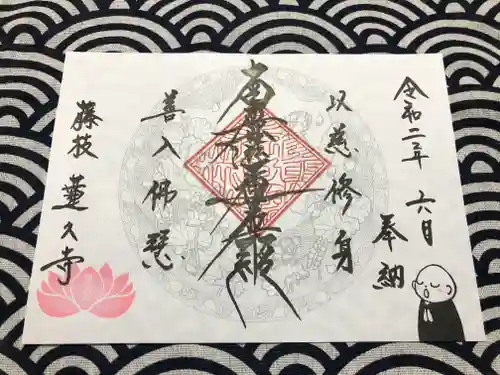 令和二年 六月
奉納
以慈修身
南無妙法蓮華経
善入佛慧
藤枝 蓮久寺